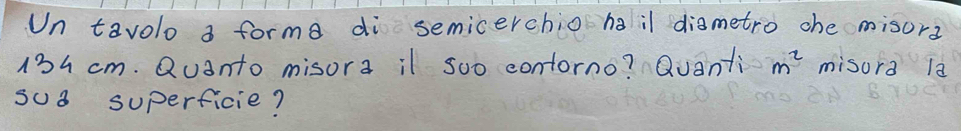 Un tavolo a forma di semicerchio ha il diametro che misura
134 cm. Quanto misura il suo contorno? Quanti m² misura la
sua superficie?